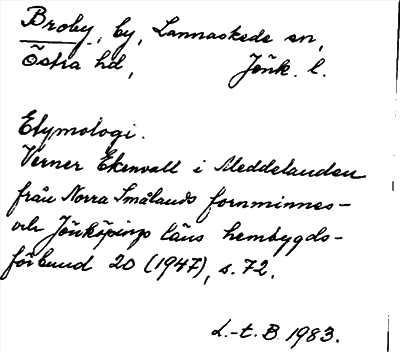 Broby, by, Lannaskede sn,
Östra hd, Jönk. l.
Etymologi.
Verner Ekenvall i Meddelanden
från Norra Smålands fornminnes-
och Jönköpings läns hembygds-
förbund 20 (1947), s. 72.
L.-t. B. 1983.